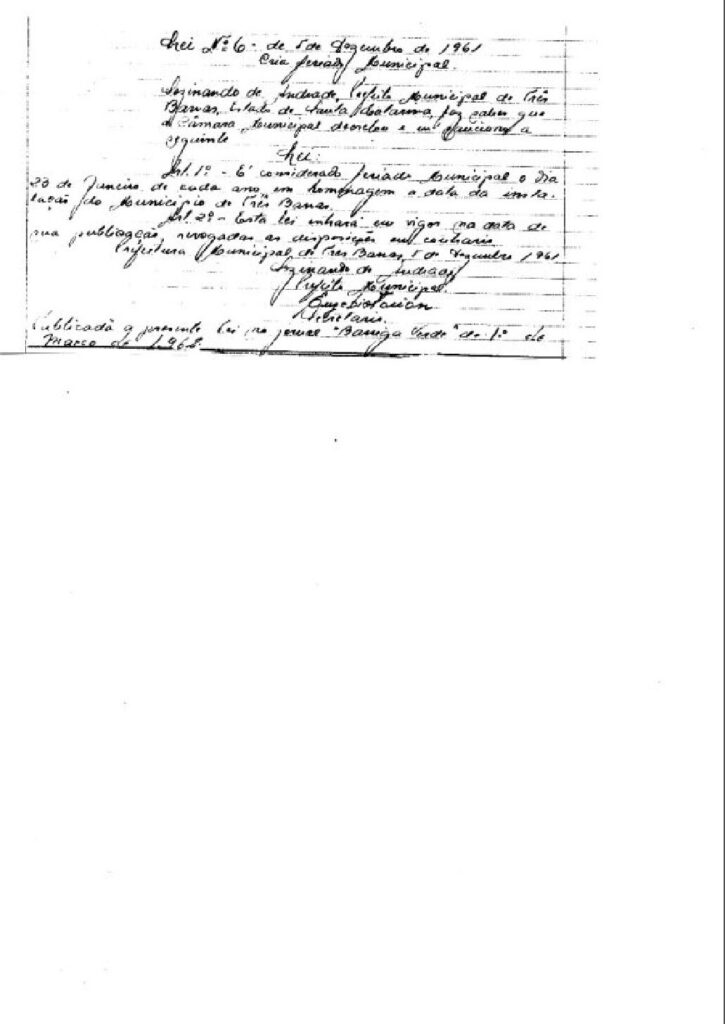 Lei Nº 6 - de 5 de Dezembro de 1961
Cria feriado Municipal.
de Andrade, Prefeito Municipal de Três
Barras, Estado de Santa Catarina, faz saber que
a Câmara Municipal decretou e eu sanciono a
seguinte
Lei:
Art. 1º - É considerado feriado Municipal o dia
23 de Janeiro de cada ano, em homenagem a data da insta-
lação do Município de Três Barras.
Art. 2º - Esta lei entrará em vigor na data de
sua publicação, revogadas as disposições em contrário.
Prefeitura Municipal de Três Barras, 5 de Dezembro 1961
de Andrade
Prefeito Municipal.
Secretario.
Publicada a presente lei no jornal "Barriga Verde" de 1º de
Março de